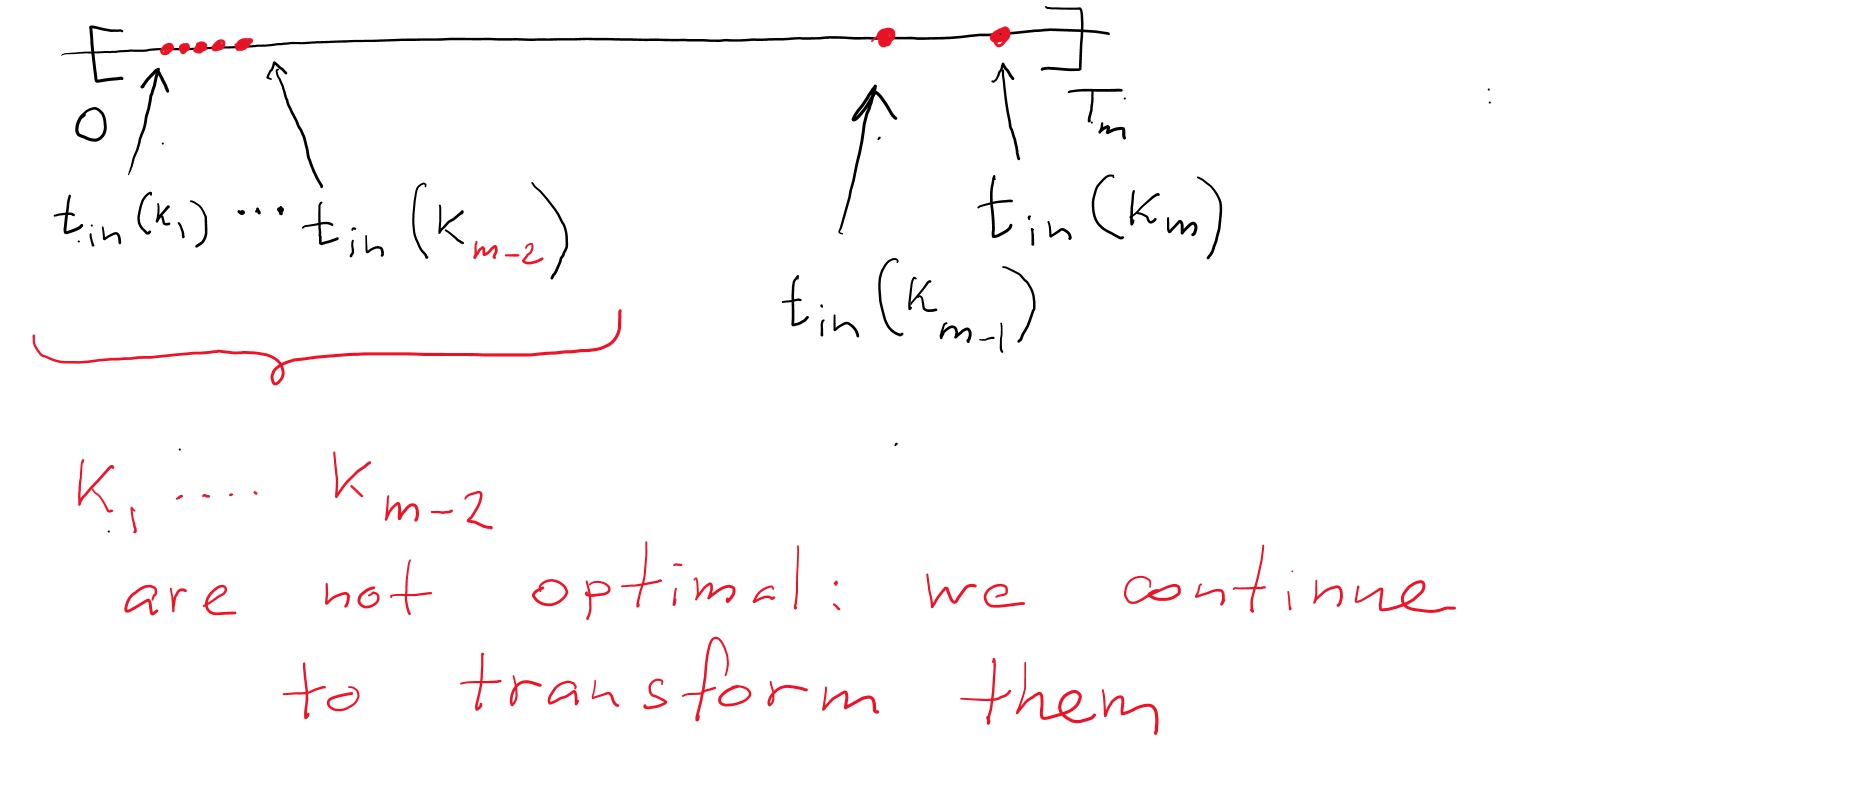 [ ]
0 T_m
t_in(K_1) ... t_in(K_{m-2}) t_in(K_m)
t_in(K_{m-1})
K_1 .... K_{m-2}
are not optimal: we continue
to transform them